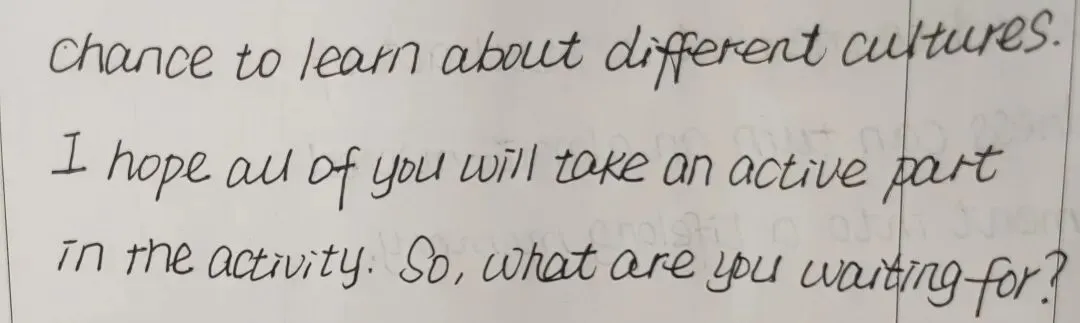 chance to learn about different cultures.
I hope all of you will take an active part
in the activity. So, what are you waiting for?